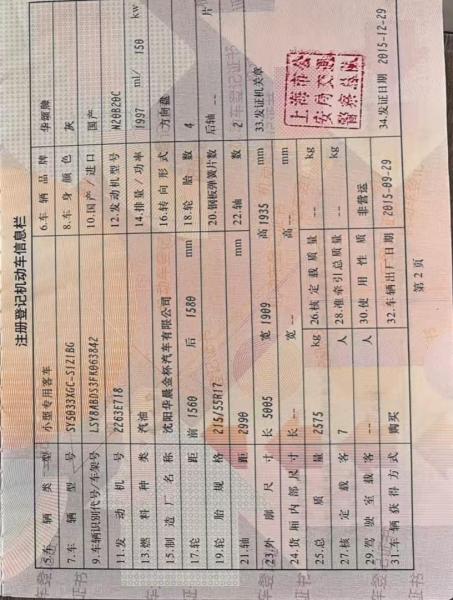 注册登记机动车信息栏
5.车辆类型 小型专用客车 6.车辆品牌 华颂牌
7.车辆型号 SY5033XGC-S1Z1BG 8.车身颜色 灰
9.车辆识别代号/车架号 LSY8ABDS3FK063842 10.国产/进口 国产
11.发动机号 2263E718 12.发动机型号 N20B20C
13.燃料种类 汽油 14.排量/功率 1997 ml/ 150 kw
15.制造厂名称 沈阳华晨金杯汽车有限公司 16.转向形式 方向盘
17.轮距 前 1560 后 1580 mm 18.轮胎数 4
19.轮胎规格 215/55R17 20.钢板弹簧片数 后轴 -- 片
21.轴距 2990 mm 22.轴数 2
23.外廓尺寸 长 5005 宽 1909 高 1935 mm 33.发证机关章
24.货厢内部尺寸 长 -- 宽 -- 高 -- mm
25.总质量 2575 kg 26.核定载质量 -- kg
27.核定载客 7 人 28.准牵引总质量 -- kg
29.驾驶室载客 -- 人 30.使用性质 非营运
31.车辆获得方式 购买 32.车辆出厂日期 2015-09-29 34.发证日期 2015-12-29
上海市公
安局交通
警察总队
第 2 页